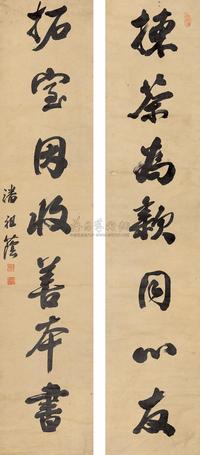 揀茶為款同心友
拓室因收善本書
潘祖蔭